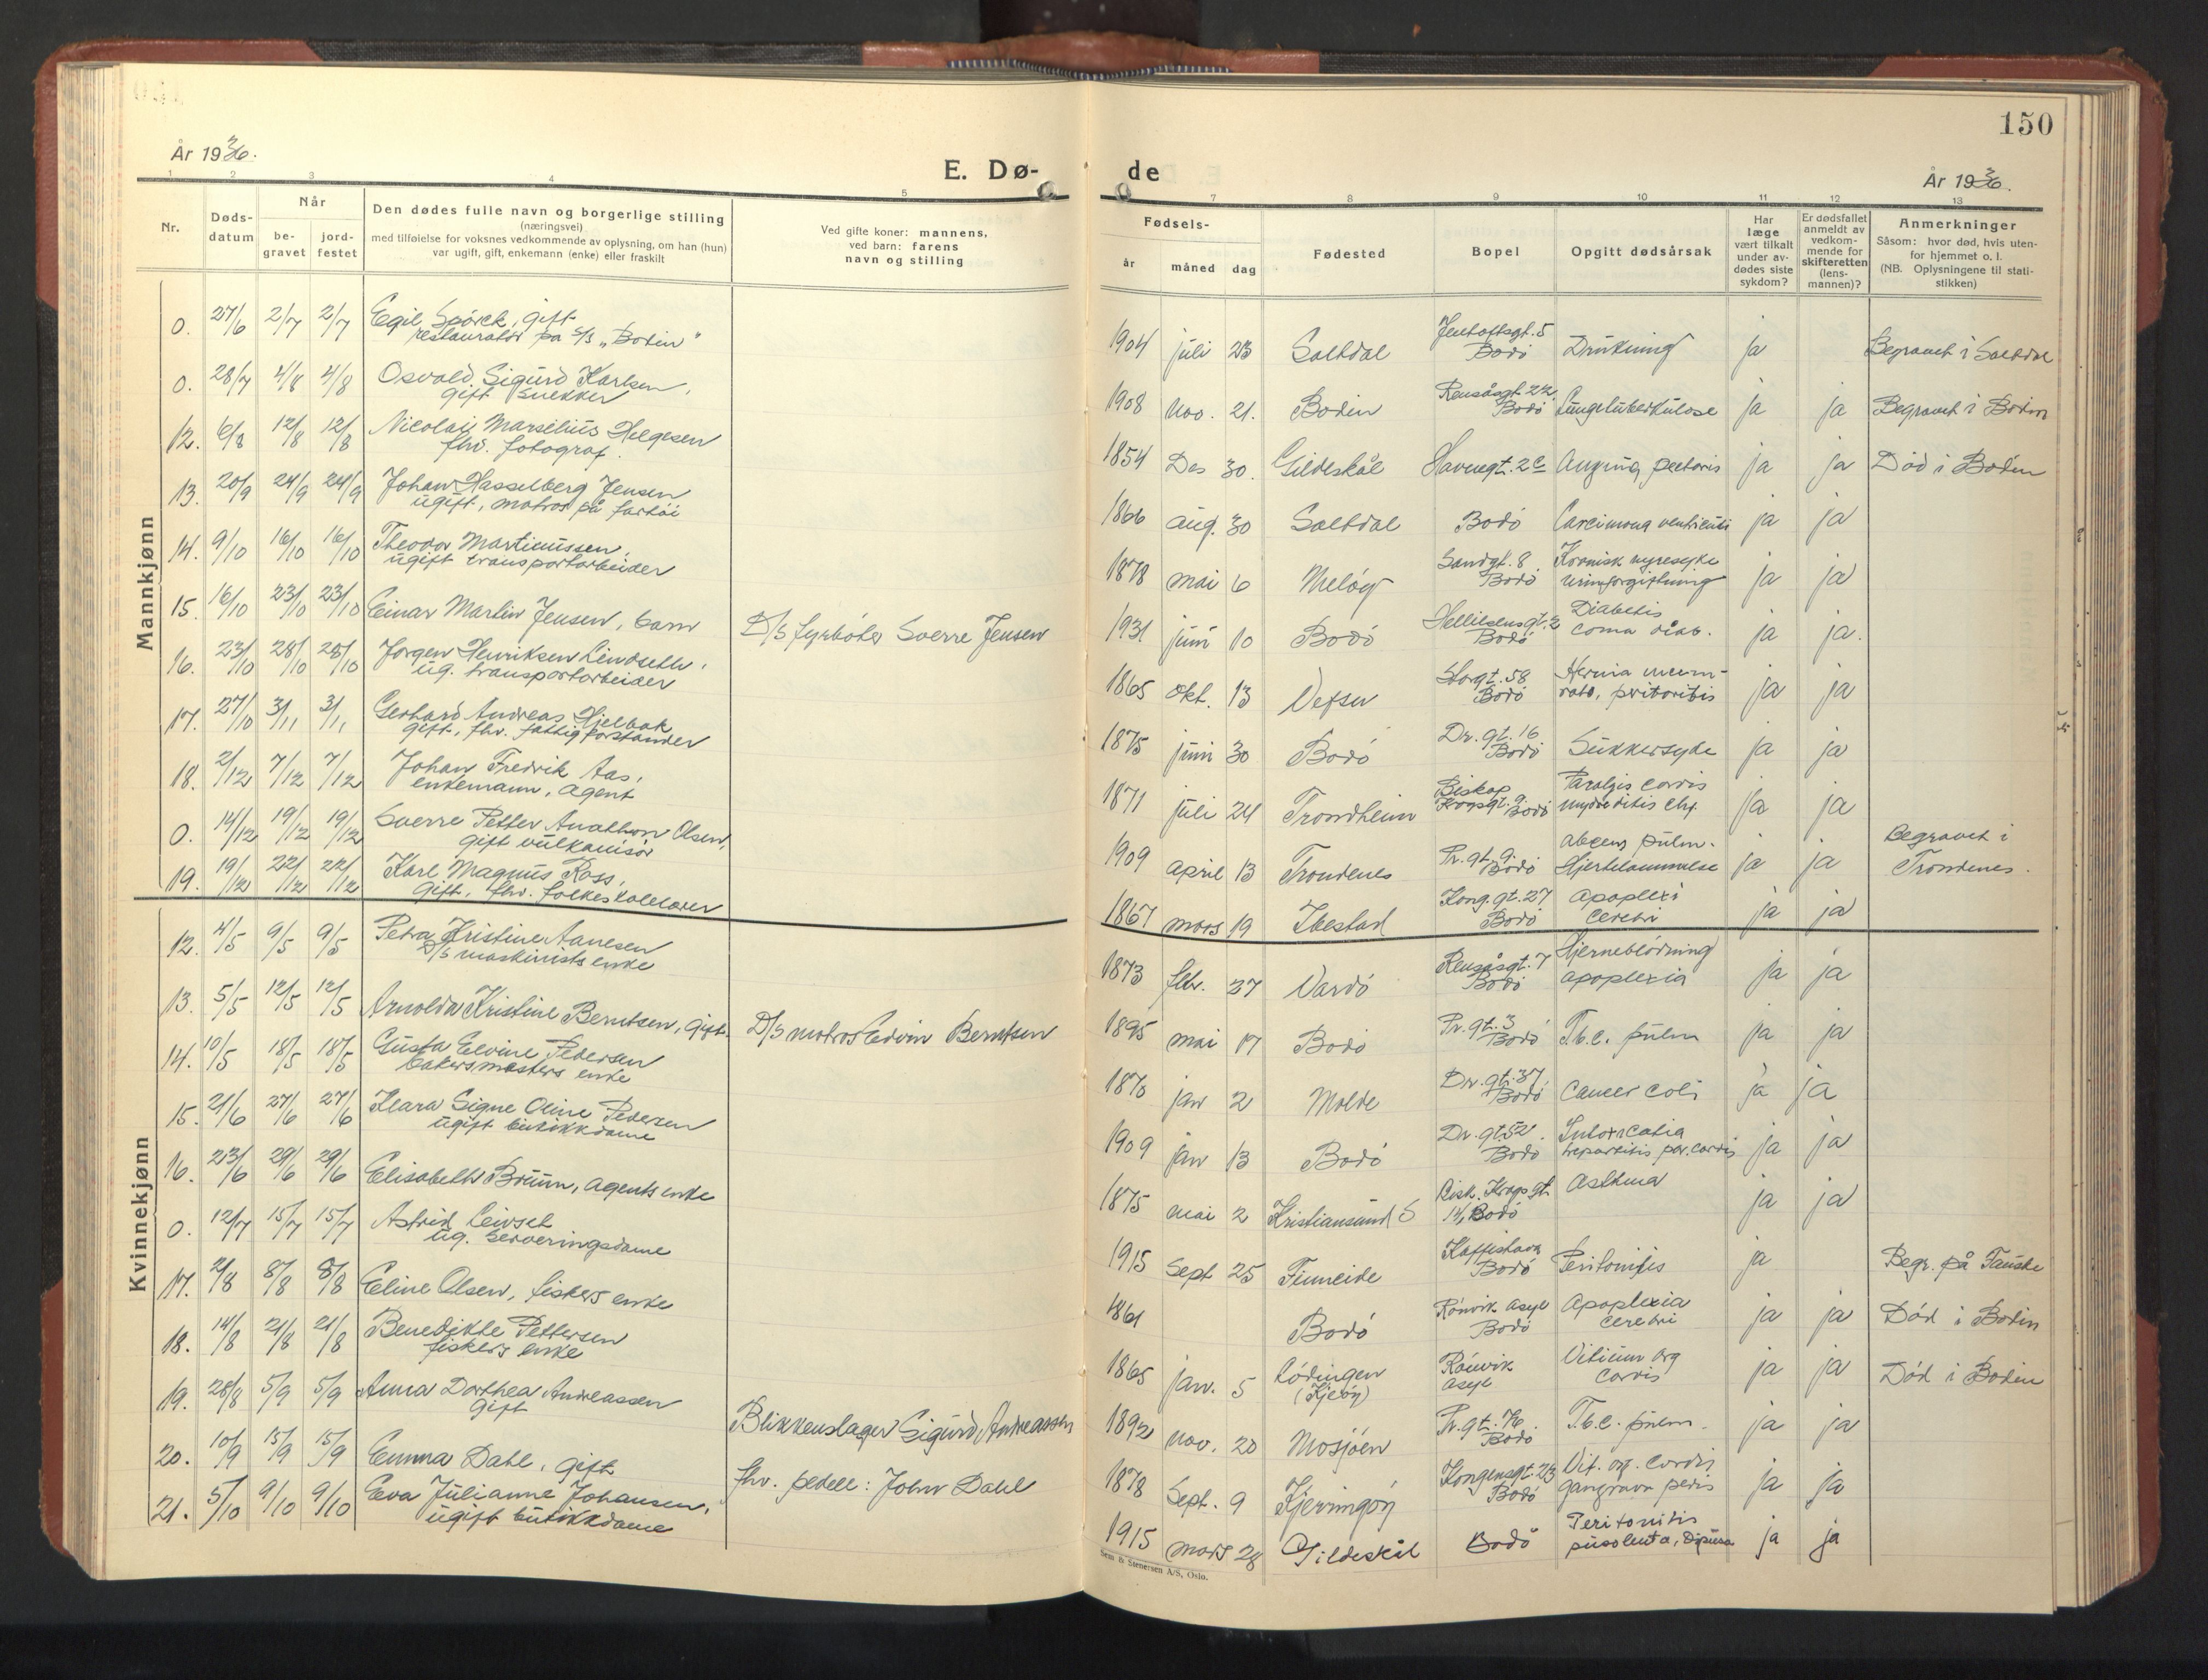 150
År 1936.
E. Dø-
de
År 1936.
1 2 3 4 5 7 8 9 10 11 12 13
Nr.
Døds-
datum
Når
be-
gravet
jord-
festet
Den dødes fulle navn og borgerlige stilling
(næringsvei)
med tilføielse for voksnes vedkommende av oplysning, om han (hun)
var ugift, gift, enkemann (enke) eller fraskilt
Ved gifte koner: mannens,
ved barn: farens
navn og stilling
Fødsels-
år måned dag
Fødested
Bopel
Opgitt dødsårsak
Har
læge
vært tilkalt
under av-
dødes siste
sykdom?
Er dødsfallet
anmeldt av
vedkom-
mende for
skifteretten
(lens-
mannen)?
Anmerkninger
Såsom: hvor død, hvis uten-
for hjemmet o. l.
(NB. Oplysningene til stati-
stikken)
Mannkjønn
0. 27/6 2/7 2/7 Egil Spörck, gift
restauratör på S/S „Bodin" 1904 juli 23 Saltdal Jentoftsgt. 5
Bodö Drukning ja Begravet i Saltdal
0. 28/7 4/8 4/8 Osvald Sigurd Karlsen,
gift snekker 1908 nov. 21. Bodin Rensåsgt. 22
Bodö Lungetuberkulose ja ja Begravet i Bodin
12. 6/8 12/8 12/8 Nicolai Marselius Helgesen
fhv. fotograf. 1854 Des 30. Gildeskål Havnegt. 2c Angina pectoris ja ja Död i Bodin
13. 20/9 24/9 24/9 Johan Hasselberg Jensen
ugift, matros på fartöi 1866 aug. 30 Saltdal Bodö Carcimona ventriculi ja ja
14. 9/10 16/10 16/10 Theodor Martinussen,
ugift transportarbeider 1878 mai 6 Melöy Sandgt. 8.
Bodö Kronisk nyresyke
urinforgiftning ja ja
15. 16/10 23/10 23/10 Einar Martin Jensen, barn D/S fyrböter Sverre Jensen 1931 juni 10 Bodö Hellilsensgt. 2
Bodö Diabetis
coma diab. ja ja.
16. 23/10 28/10 28/10 Jörgen Henriksen Lindseth,
ug. transportarbeider 1865 okt. 13 Vefsn Storgt. 58
Bodö Hernia
peritonitis ja ja
17. 27/10 3/11 3/11 Gerhard Andreas Hjelbak
gift, fhv. fattigforstander 1875 juni 30 Bodö Dr. gt. 16
Bodö Sukkersyke ja ja
18. 2/12 7/12 7/12 Johan Fredrik Aas,
enkemann, agent 1871 juli 24 Trondheim Biskop
Krogsgt. 9. Bodö Paralysis cordis
ja ja
0. 14/12 19/12 19/12 Sverre Petter Anathon Olsen,
gift vulkanisör 1909 april 13 Trondenes Pr. gt. 9.
Bodö absens pulm.
Hjertelammelse ja ja Begravet i
Trondenes.
19. 19/12 22/12 22/12 Karl Magnus Ross,
gift, fhv. folkeskolelærer 1867 mars 19 Ibestad Kong. gt. 27
Bodö apoplexi
cerebri ja ja
Kvinnekjønn
12. 4/5 9/5 9/5 Petra Kristine Aanesen
D/S maskinists enke 1873 febr. 27 Vardö Rensåsgt. 7
Bodö Hjerneblödning
apoplexia ja ja
13. 5/5 12/5 12/5 Arnolda Kristine Berntsen, gift. D/S matros Edvin Berntsen 1895 mai 17 Bodö Pr. gt. 3
Bodö T.b.c. pulm ja ja
14. 10/5 18/5 18/5 Gusta Elvine Pedersen
bakersmesters enke 1870 jan 2 Molde Dr. gt. 37
Bodö Cancer coli ja ja
15. 21/6 27/6 27/6 Klara Signe Oline Pedersen
ugift butikkdame 1909 jan 13 Bodö Dr. gt. 52.
Bodö Intoxicatia
par. cordis ja ja
16. 23/6 29/6 29/6 Elisabeth Bruun, agents enke 1875 mai 2 Kristiansund S Bisk. Krogs gt.
14, Bodö Asthma ja ja
0. 12/7 15/7 15/7 Astrid Leivset
ug. serveringsdame 1915 Sept 25 Finneide Kaffistova
Bodö Peritonitis ja Begr. på Fauske
17. 2/8 8/8 8/8 Eline Olsen, fiskers enke 1861 Bodö Rönvik asyl
Bodö Apoplexia
cerebri ja ja Död i Bodin
18. 14/8 21/8 21/8 Benedikte Pettersen
fiskers enke 1865 jan. 5 Lödingen
(Kjeöy) Rönvik
asyl Vitium org
cordis ja ja Död i Bodin
19. 28/8 5/9 5/9 Anna Dorthea Andreassen
gift Blikkenslager Sigurd Andreassen 1892 nov. 20 Mosjöen Pr. gt. 76.
Bodö T.b.c. pulm. ja ja
20. 10/9 15/9 15/9 Emma Dahl, gift fhv. pedell: John Dahl 1878 Sept. 9 Kjerringöy Kongensgt. 23
Bodö Vit. org. cordis
gangræna pedis ja ja
21. 5/10 9/10 9/10 Eva Julianne Johansen,
ugift butikkdame 1915 mars 28 Gildeskål Bodö Peritonitis
ja ja
Sem & Stenersen A/S, Oslo.